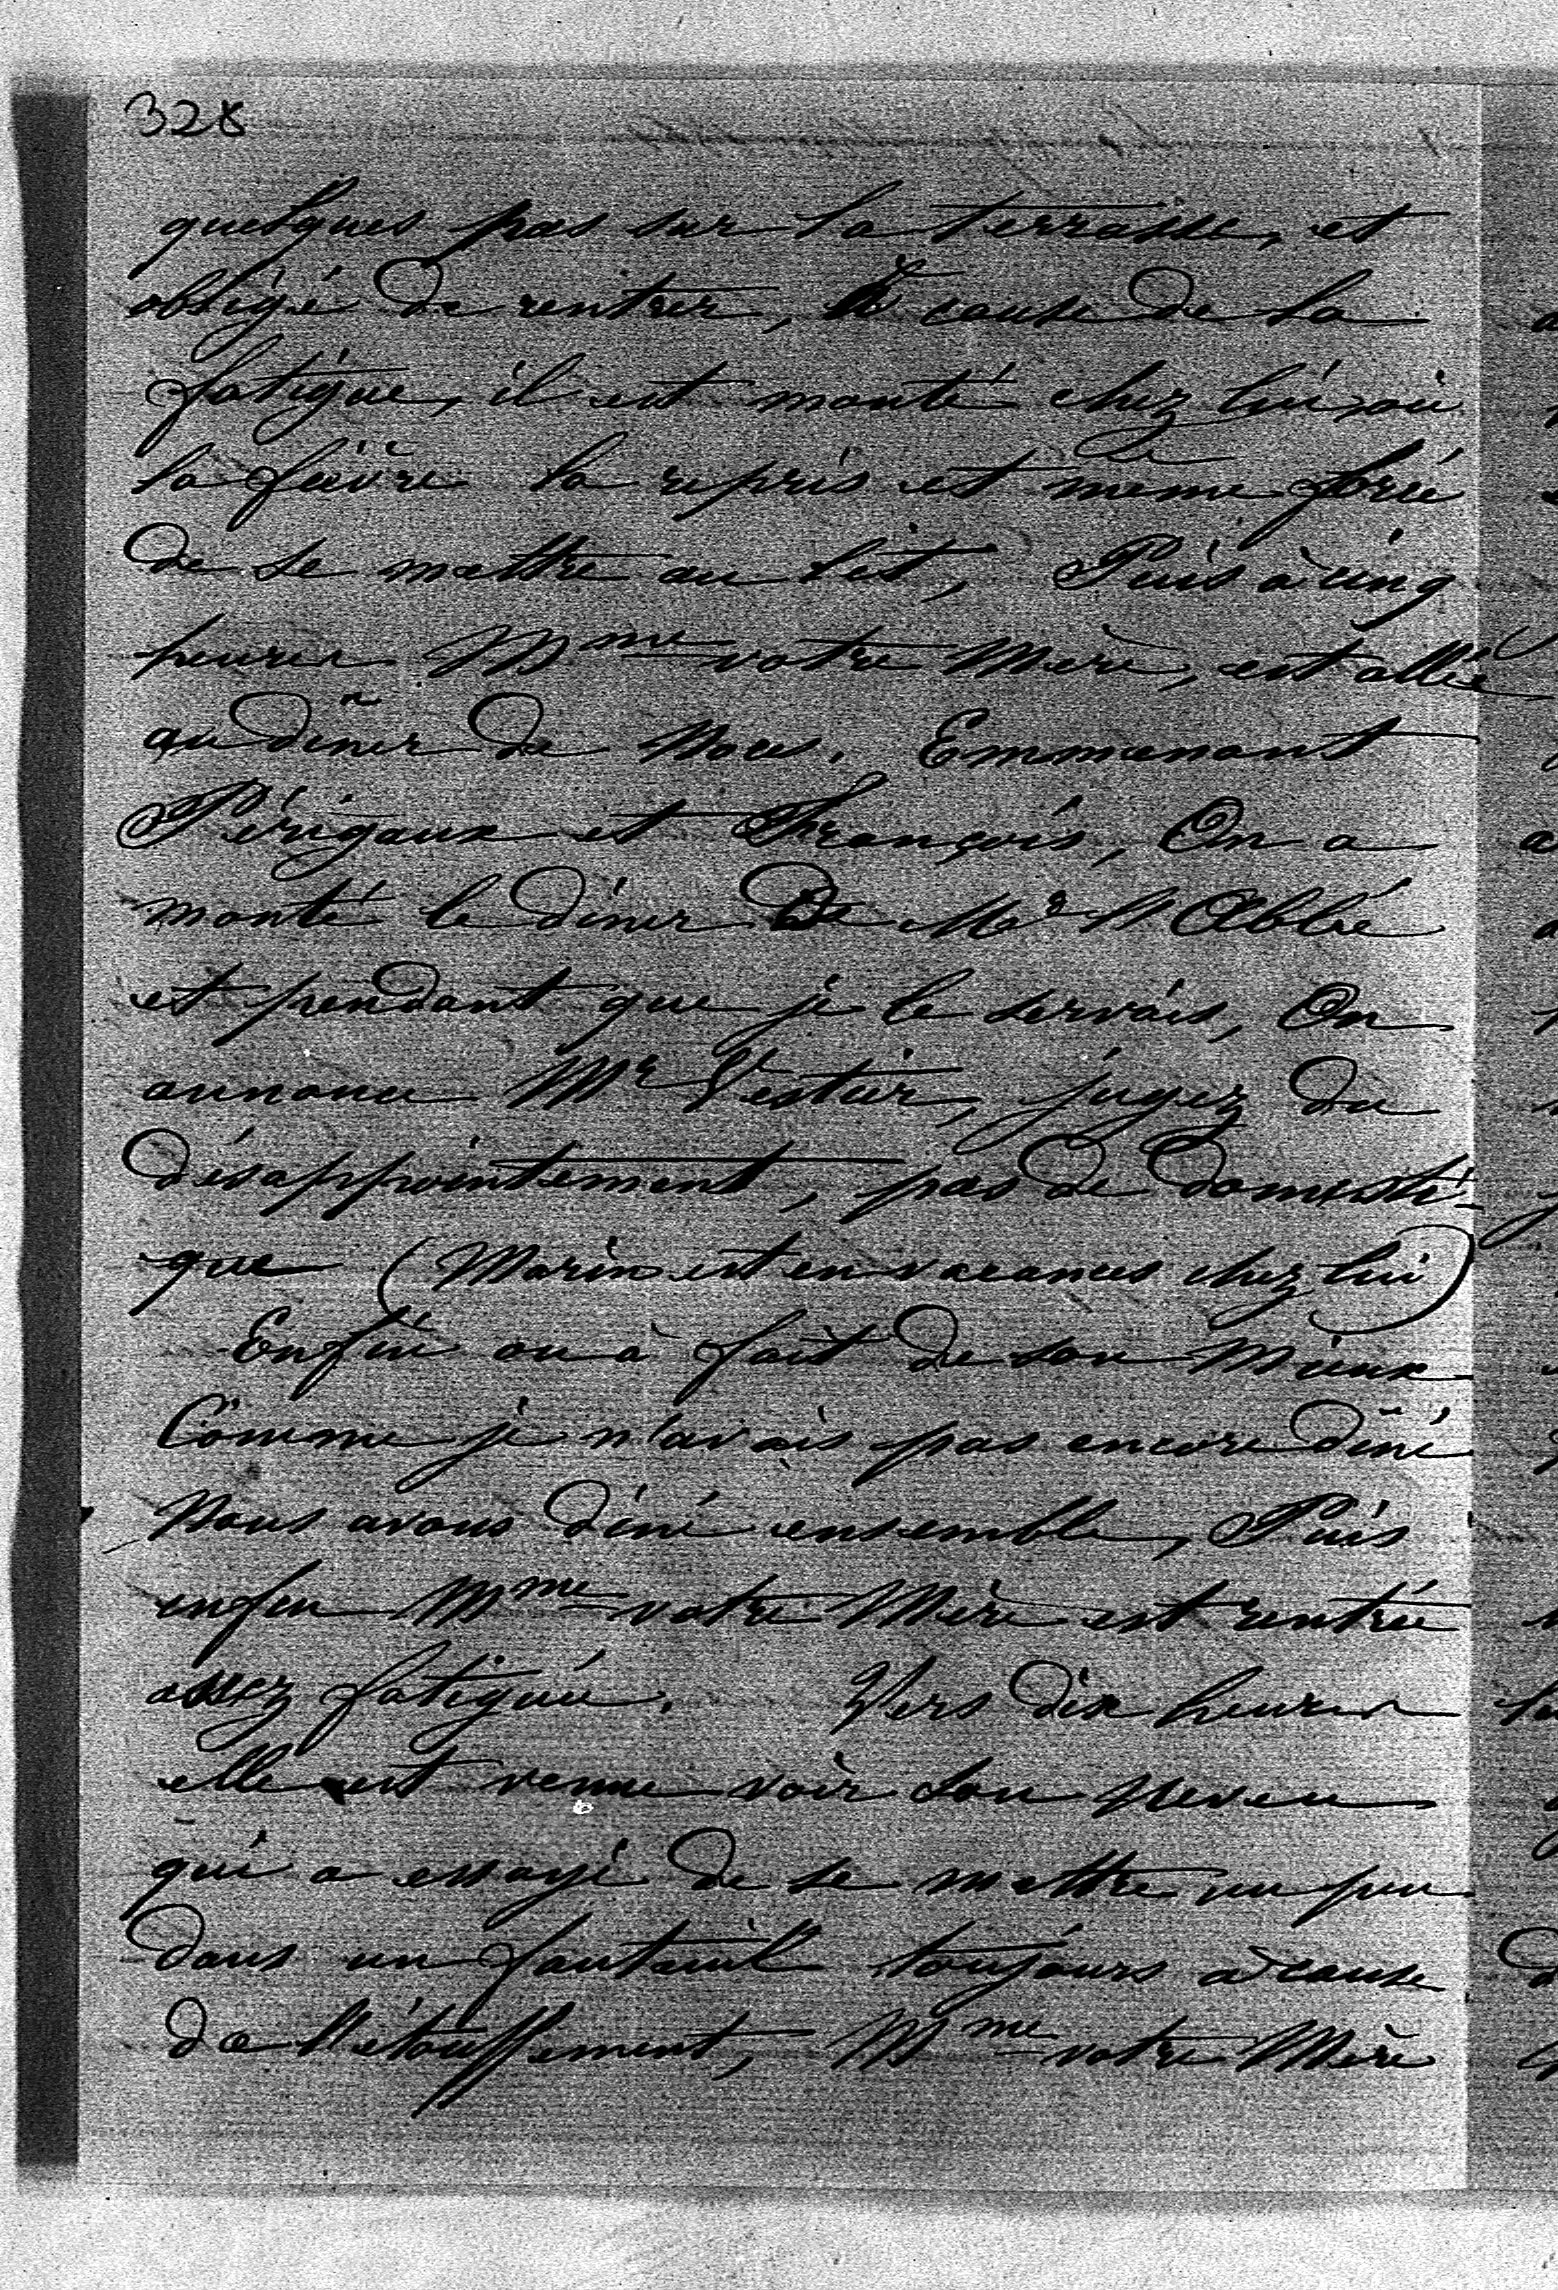 328
quelques pas sur la terrasse, et
obligé de rentrer, à cause de la
fatigue, il est monté chez lui, où
la fièvre la repris et même forcé
de se mettre au lit, Puis à cinq
heures Mme votre Mère, est allée
au dîner de Noces. Emmenant
Périgaux et François, On a
monté le diner De Mr l'Abbé
et pendant que je le servais, On
annonce Mr Vestier, jugez du
désappointement, pas de domesti-
que (Marin est en vacances chez lui)
Enfin on a fait de son mieux
Comme je n'avais pas encore diné
Nous avons diné ensemble, Puis
enfin Mme votre Mère est rentrée
assez fatiguée. Vers dix heures
elle est venue voir son Neveu
qui a essayé de se mettre un peu
dans un fauteuil toujours à cause
de l'étouffement, Mme votre Mère